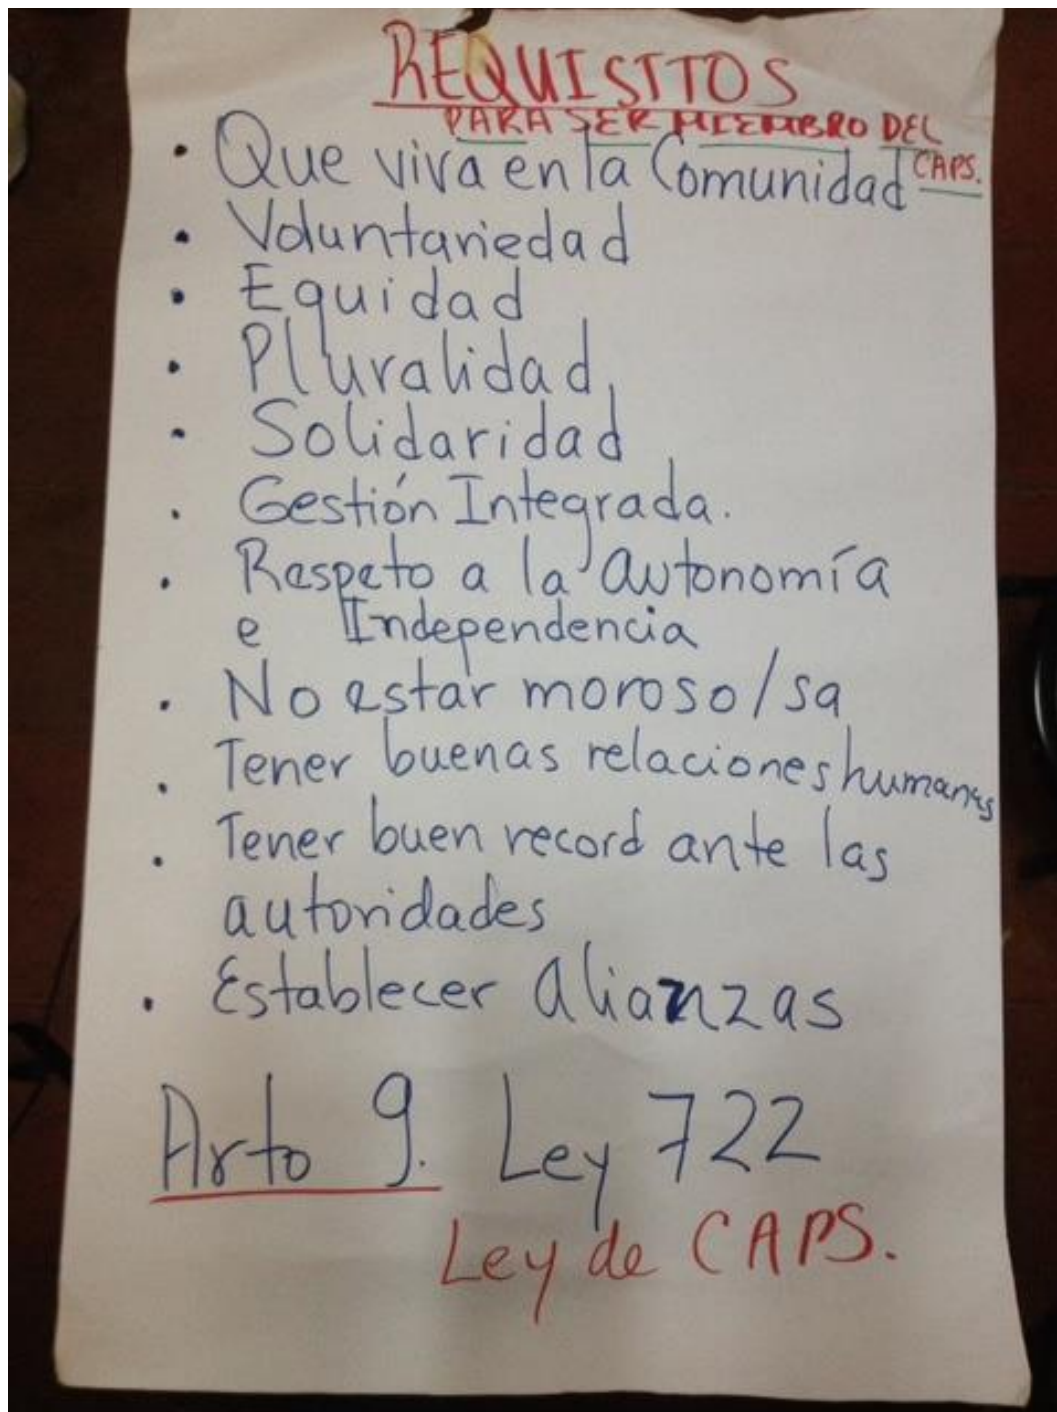 REQUISITOS
PARA SER MIEMBRO DEL
CAPS.
• Que viva en la Comunidad
• Voluntariedad
• Equidad
• Pluralidad,
• Solidaridad
. Gestión Integrada.
. Respeto a la autonomía
e Independencia
. No estar moroso/sa
. Tener buenas relaciones humanas
. Tener buen record ante las
autoridades
. Establecer alianzas
Arto 9. Ley 722
Ley de CAPS.